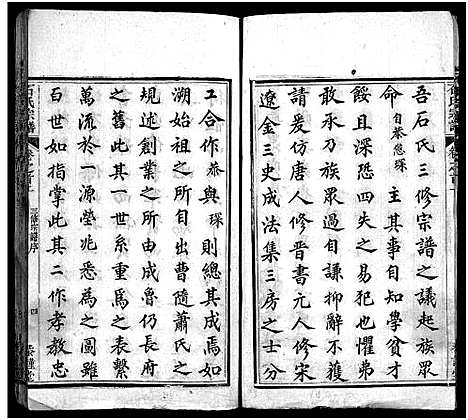 吾石氏三修宗譜之議起族眾
命自葵慫琛主其事自知學貧才
餒且深恐四失之易犯也懼弗
敢承乃族眾過自謙抑辭不獲
請爰仿唐人修晉書元人修宋
遼金三史成法集三房之士分
工合作葵與琛則總其成焉如
溯始祖之所自出曹隨蕭氏之
規述創業之所由成魯仍長府
之舊此其一世系重為之表繫
萬流於一源塋兆悉為之圖雖
百世如指掌此其二作孝教忠
石氏宗譜
三修宗譜序
四